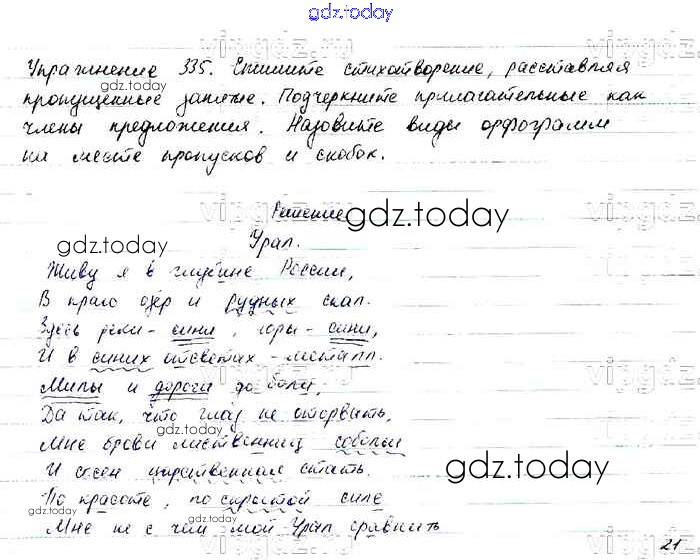 gdz.today
Упражнение 335. Спишите стихотворение, расставляя
пропущенные запятые. Подчеркните прилагательные как
члены предложения. Назовите виды орфограмм
на месте пропусков и скобок.
Решение
gdz.today
gdz.today
Урал.
Живу я в глубине России,
В краю озёр и рудных скал.
Здесь реки - сини, горы - сини,
И в синих отсветах - металл.
Милы и дороги до боли,
Да так, что глаз не оторвать,
gdz.today
Мне брови лиственниц собольи
И сосен царственная стать.
gdz.today
По красоте, по скрытой силе
gdz.today
Мне не с чем мой Урал сравнить
21